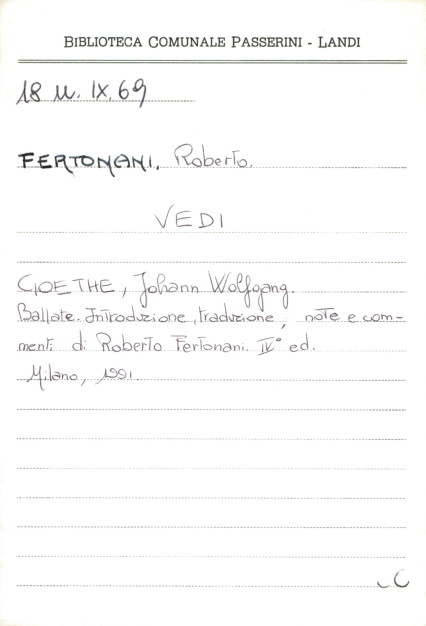 BIBLIOTECA COMUNALE PASSERINI - LANDI
18 U. IX. 69
FERTONANI, Roberto.
VEDI
GOETHE, Johann Wolfgang.
Ballate. Introduzione, traduzione, note e com-
menti di Roberto Fertonani. IV° ed.
Milano, 1991.